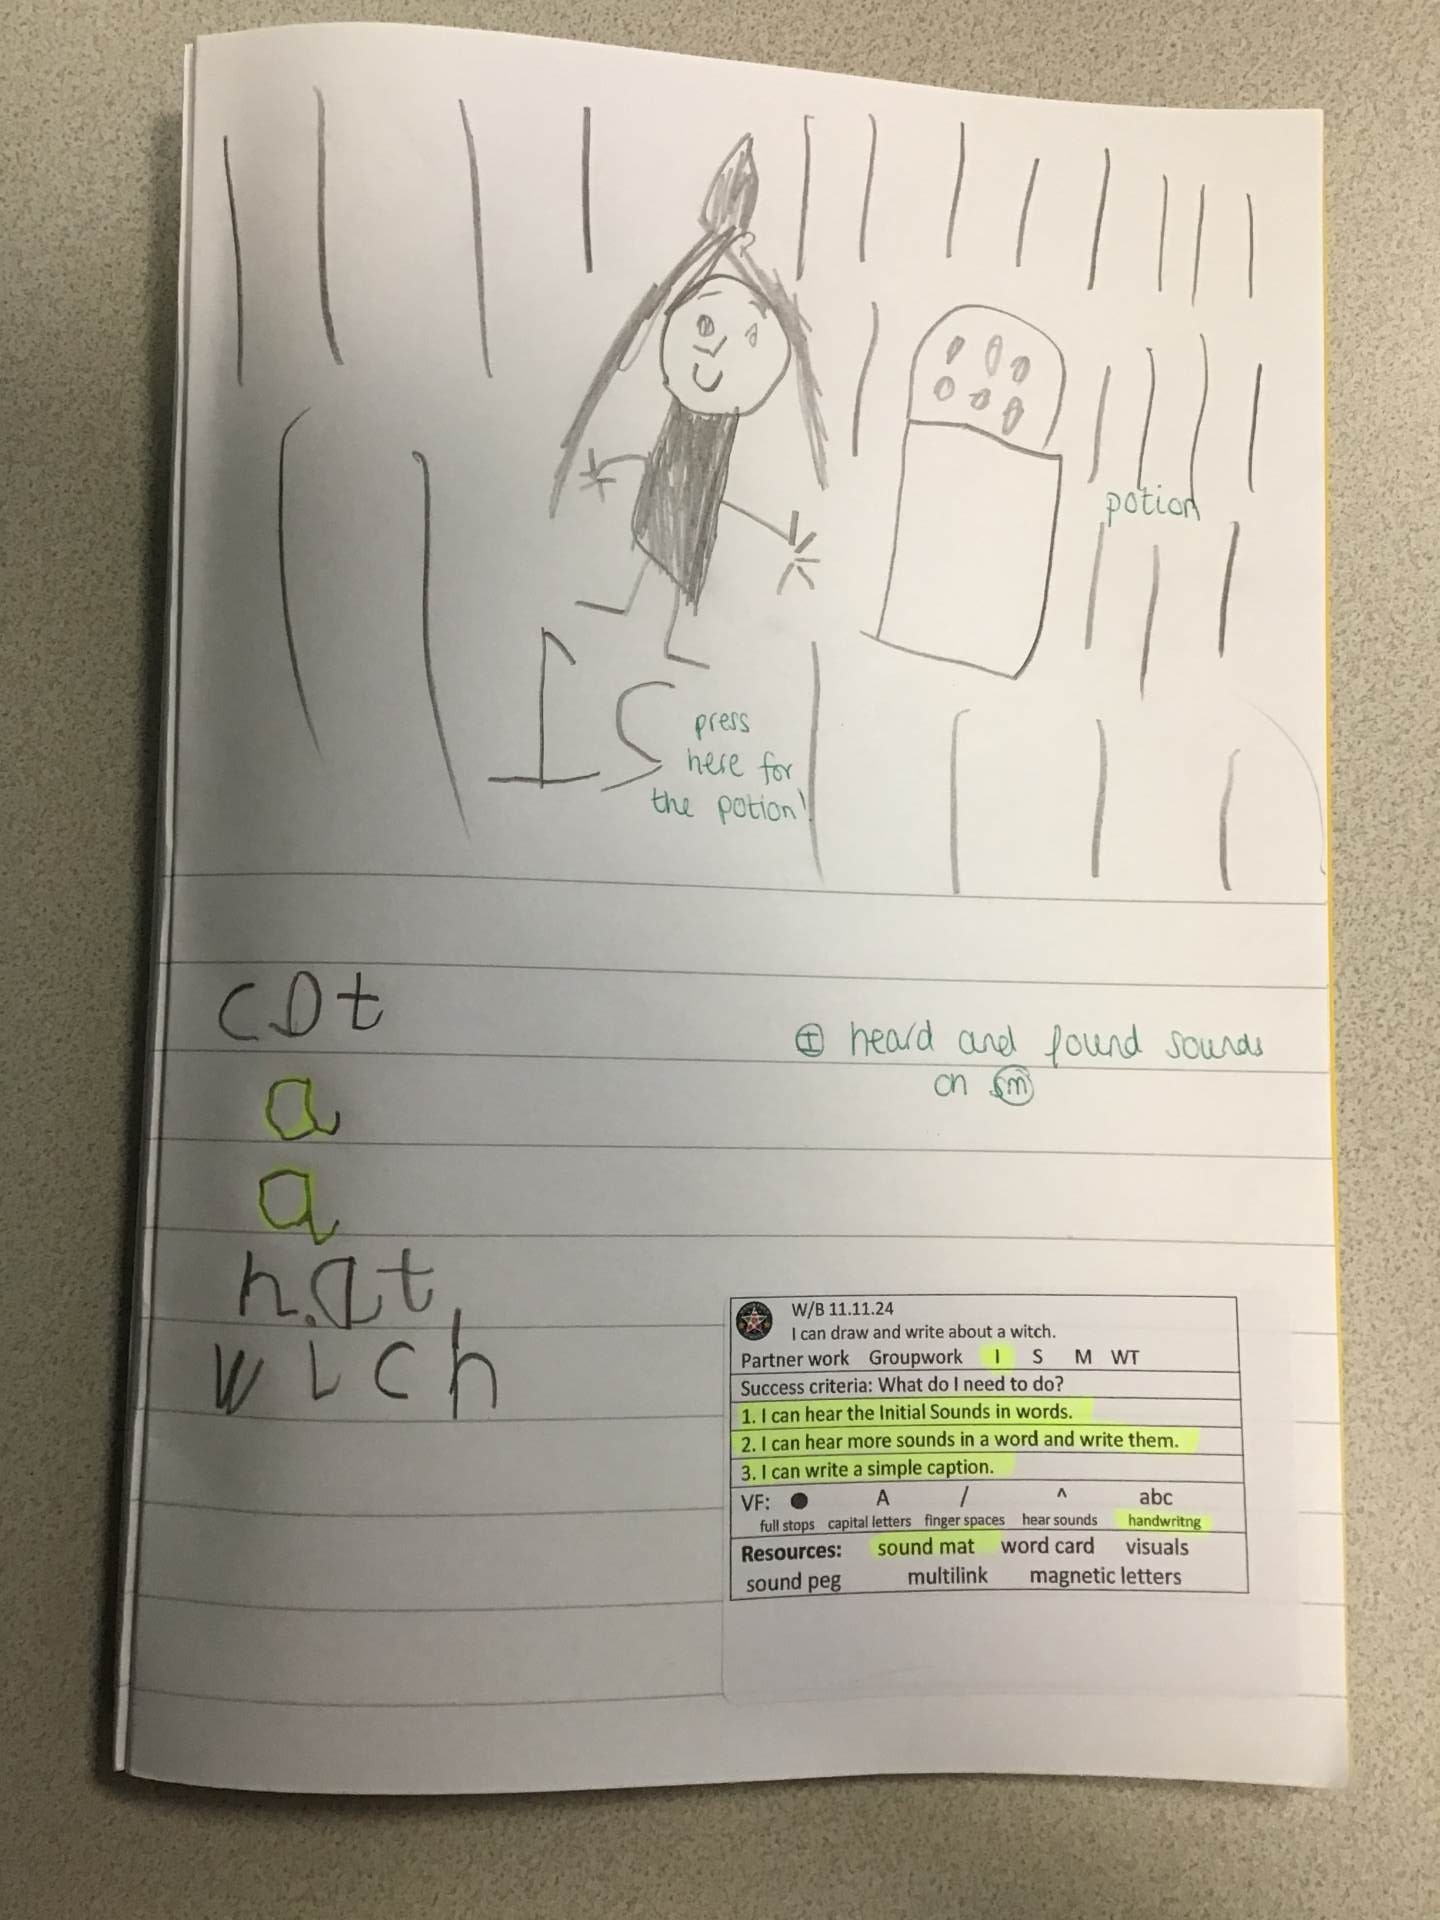 potion
IS
press
here for
the potion!
cat
a
a
h.at
wich
Ⓘ heard and found sounds
on sm
W/B 11.11.24
I can draw and write about a witch.
Partner work Groupwork I S M WT
Success criteria: What do I need to do?
1. I can hear the Initial Sounds in words.
2. I can hear more sounds in a word and write them.
3. I can write a simple caption.
VF: ● A / ^ abc
full stops capital letters finger spaces hear sounds handwritng
Resources: sound mat word card visuals
sound peg multilink magnetic letters